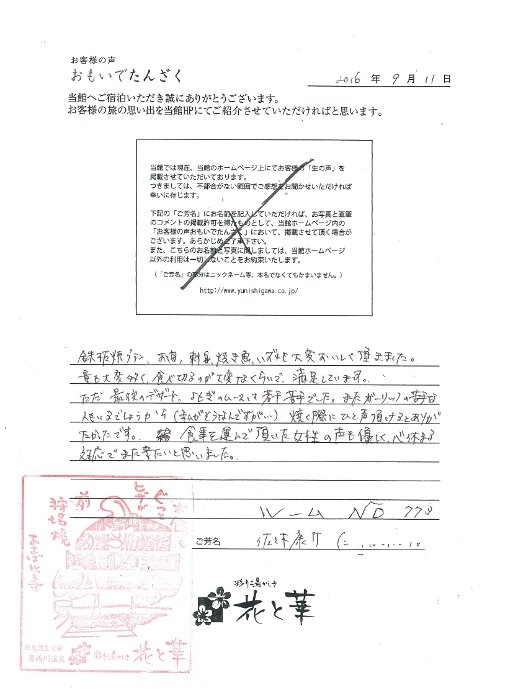 お客様の声
おもいでたんざく
2016 年 9 月 11 日
当館へご宿泊いただき誠にありがとうございます。
お客様の旅の思い出を当館HPにてご紹介させていただければと思います。
当館では現在、当館のホームページ上にてお客様の「生の声」を
掲載させていただいております。
つきましては、不都合がない範囲でご感想をお聞かせいただければ
幸いに存じます。
下記の「ご芳名」にお名前を記入していただければ、お写真と直筆
のコメントの掲載許可を得たものとして、当館ホームページ内の
「お客様の声おもいでたんざく」において、掲載させて頂く場合が
ございます。あらかじめご了承下さい。
また、こちらのお名前と写真に関しましては、当館ホームページ
以外の利用は一切しないことをお約束いたします。
(「ご芳名」の部分はニックネーム等、本名でなくてもかまいません。)
http://www.yunishigawa.co.jp/
鉄板焼プラン、お肉、刺身、焼き魚、いずれも大変おいしく頂きました。
量も大変多く、食べ切るのが大変なくらいで、満足しています。
ただ 最後のデザート、よもぎのムースは 若干苦手でした。またガーリックの苦手な
人もいるでしょうから (私がそうなんですが…) 焼く際にひと声頂けるとありが
たかったです。 食事を運んで頂いた女性の声も優しく、心休まる
対応でまた来たいと思いました。
ルーム NO 778
ご芳名
彩り湯かしき
花と華
前
彩り湯かしき 花と華
日光国立公園
湯西川温泉